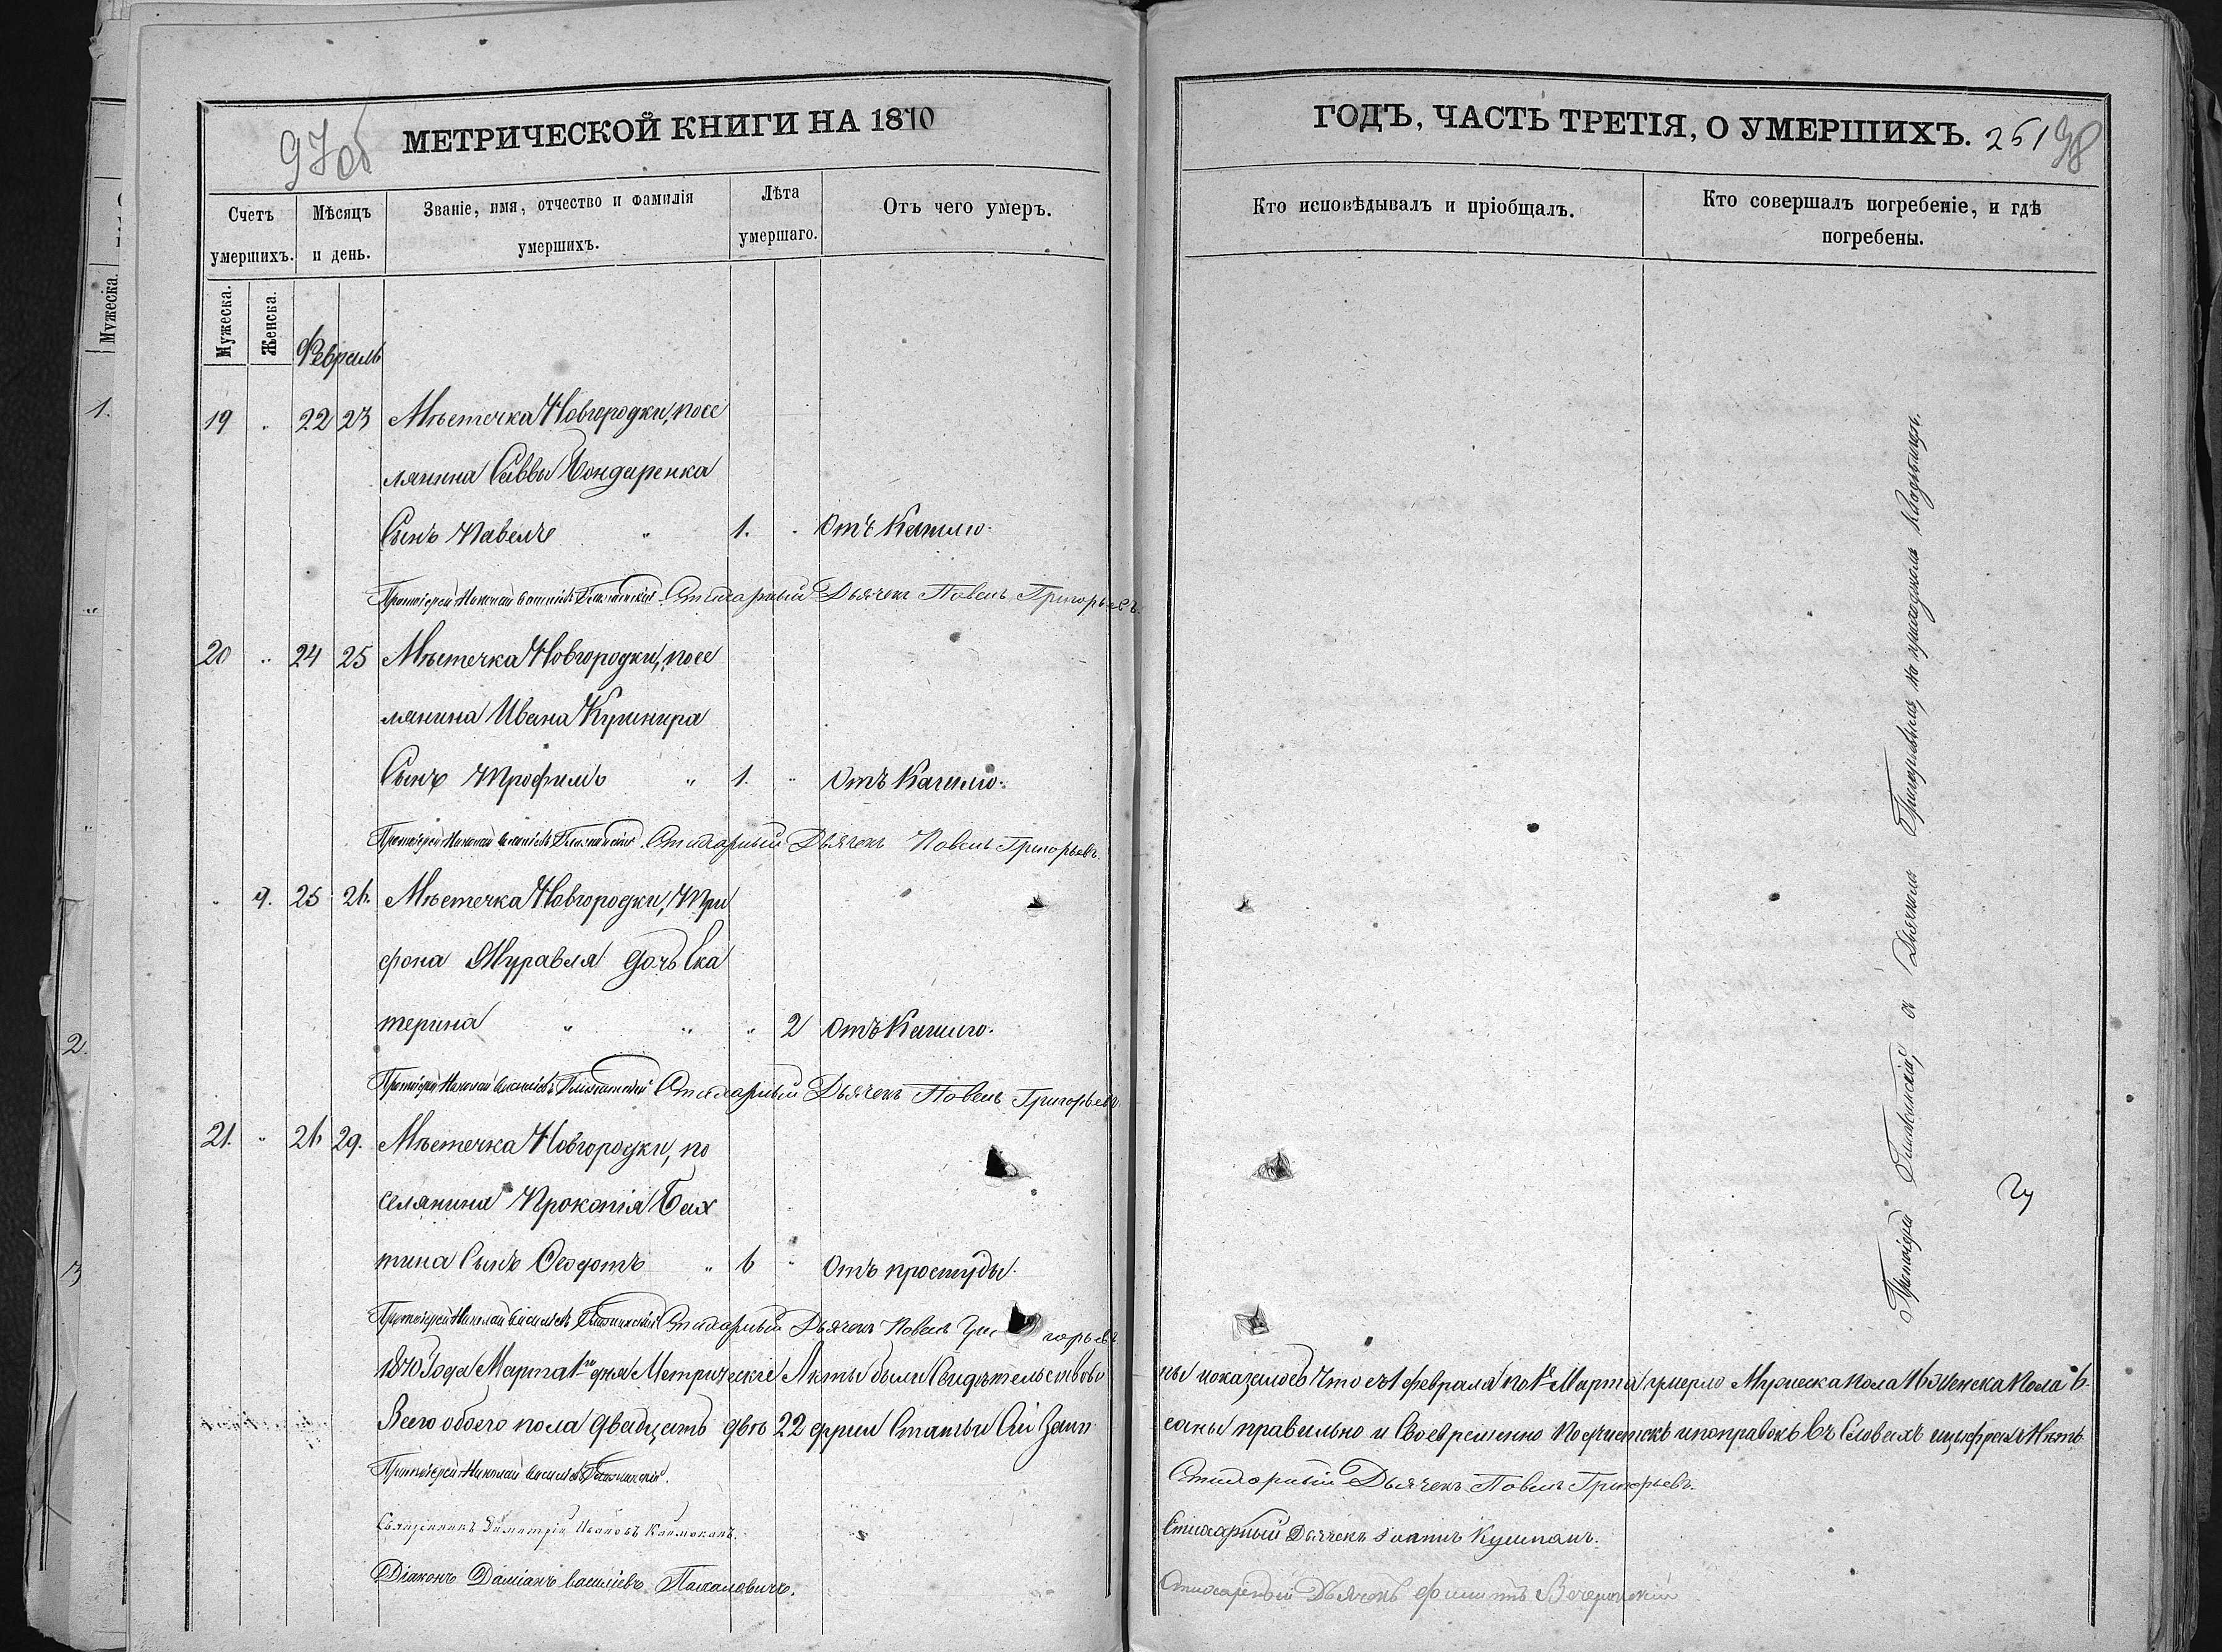 97 об
МЕТРИЧЕСКОЙ КНИГИ НА 1870
Счетъ умершихъ.
Мѣсяцъ и день.
Званіе, имя, отчество и фамилія умершихъ.
Лѣта умершаго.
Отъ чего умеръ.
Мужеска.
Женска.
Февраль
19 " 22 23 Мѣстечка Новгородки, посе
лянина Саввы Бондаренка
Сынъ Павелъ " 1. " Отъ Кашлю.
Протоіерей Николай Стихарный Дьячекъ Павелъ Григорьевъ.
20 " 24 25 Мѣстечка Новгородки, посе
лянина Ивана Кушнира
Сынъ Трофимъ " 1. " Отъ Кашлю.
Протоіерей Николай Стихарный Дьячекъ Павелъ Григорьевъ.
" 9. 25 26. Мѣстечка Новгородки, Три
фона Муравля дочь Ека
терина " " " 2 Отъ Кашлю.
Протоіерей Николай Стихарный Дьячекъ Павелъ Григорьевъ.
21. " 26 29. Мѣстечка Новгородки, по
селянина Прокопія Бах
тина Сынъ Ѳеодотъ " 6 " Отъ простуды.
Протоіерей Николай Стихарный Дьячекъ Павелъ Григорьевъ
1870 Года Марта 1го дня Метрическіе Акты были Свидѣтельствова
Всего обоего пола двадцать двѣ 22 души Статьи Сіи Запи
Протоіерей Николай
Священникъ Димитрій Ивановъ
Діаконъ Даміанъ Василіевъ
ГОДЪ, ЧАСТЬ ТРЕТІЯ, О УМЕРШИХЪ. 251 98
Кто исповѣдывалъ и пріобщалъ.
Кто совершалъ погребеніе, и гдѣ погребены.
Протоіерей съ Дьячкомъ Григорьевымъ, на приходскомъ Кладбищѣ.
ны показалось Что съ 1 февраля по 1е Марта умерло Мужеска пола 16 Женска Пола 6.
саны правильно и Своевременно Подчистокъ и поправокъ въ Словахъ и цыфрахъ Нѣтъ
Стихарный Дьячекъ Павелъ Григорьевъ.
Стихарный Дьячекъ
Стихарный Дьячекъ
Мужеска.
1.
2.
3